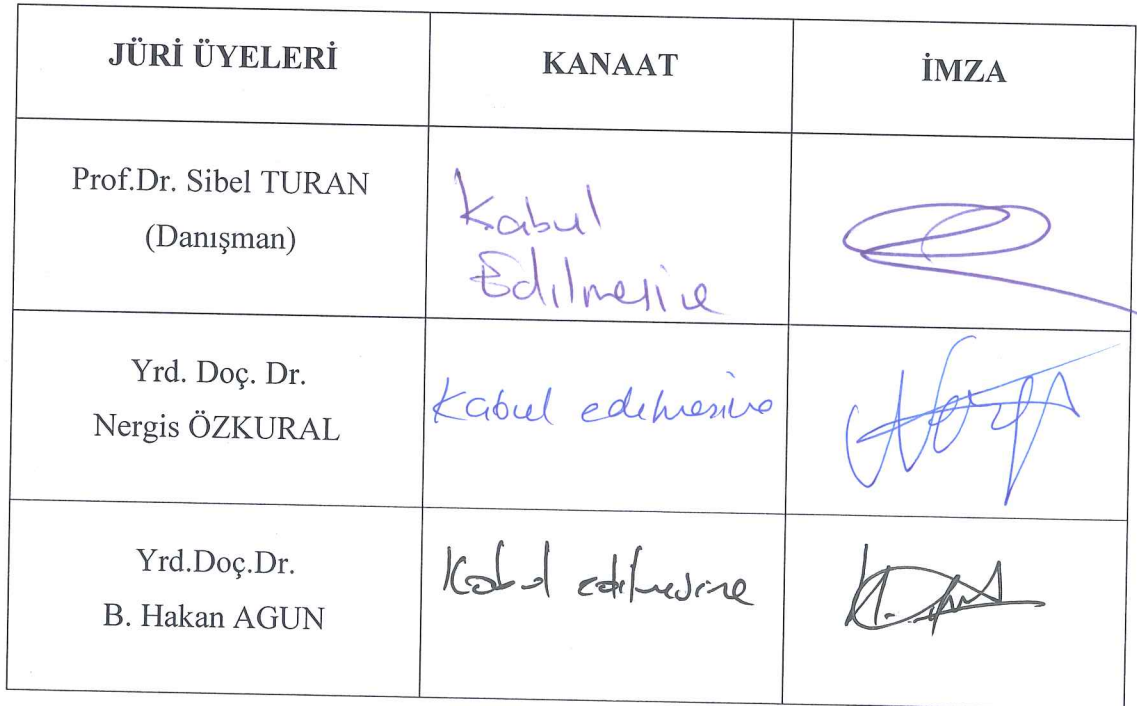 JÜRİ ÜYELERİ
KANAAT
İMZA
Prof.Dr. Sibel TURAN
(Danışman)
Kabul
Edilmesine
Yrd. Doç. Dr.
Nergis ÖZKURAL
Kabul edilmesine
Yrd.Doç.Dr.
B. Hakan AGUN
Kabul edilmesine